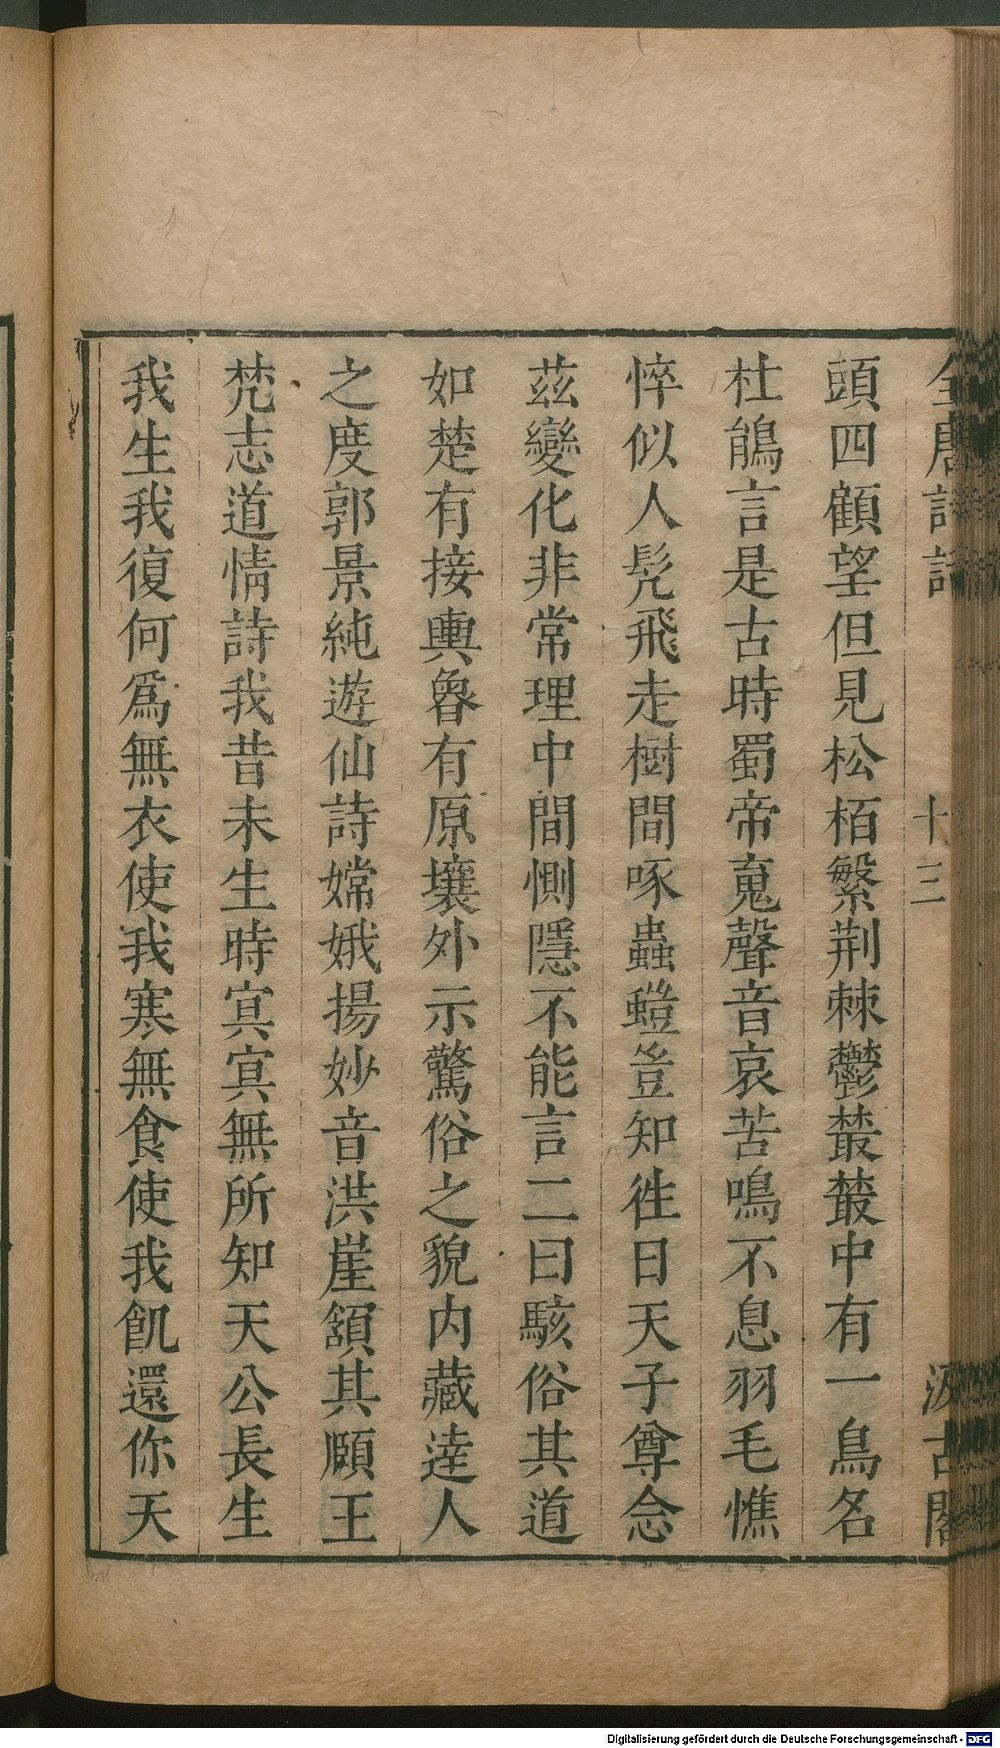 全唐詩話
十三
汲古閣
頭四顧望但見松栢繁荆棘鬱蒙叢中有一鳥名
杜鵑言是古時蜀帝䰟聲音哀苦鳴不息羽毛憔
悴似人髠飛走樹間啄蟲螘豈知徃日天子尊念
茲變化非常理中間惻隱不能言二曰駭俗其道
如楚有接輿魯有原壤外示驚俗之貌内藏達人
之度郭景純遊仙詩嫦娥揚妙音洪崖頷其頤王
梵志道情詩我昔未生時㝠㝠無所知天公長生
我生我復何爲無衣使我寒無食使我飢還你天
Digitalisierung gefördert durch die Deutsche Forschungsgemeinschaft - DFG